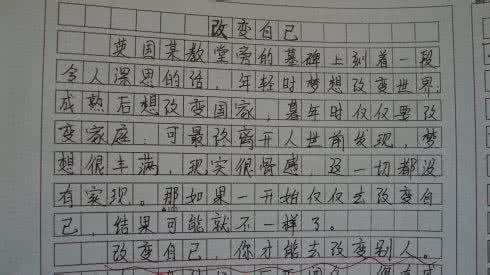 改变自己
英国某教堂旁的墓碑上刻着一段
令人深思的话，年轻时梦想改变世界，
成熟后想改变国家，暮年时仅仅要改
变家庭，可最终离开人世前发现，梦
想很丰满，现实很骨感，这一切都没
有实现。那如果一开始仅仅去改变自
己，结果可能就不一样了。
改变自己，你才能去改变别人。